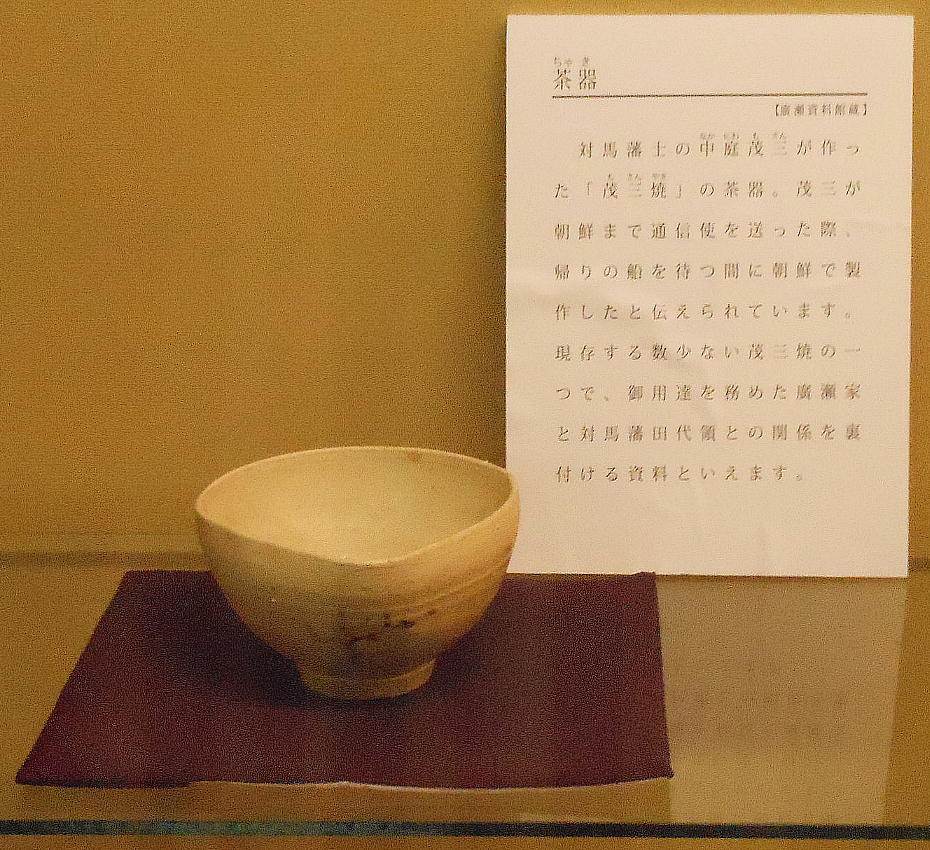 ちゃき
茶器
【廣瀬資料館蔵】
なかにわもさん
対馬藩士の中庭茂三が作っ
もさんやき
た「茂三焼」の茶器。茂三が
朝鮮まで通信使を送った際、
帰りの船を待つ間に朝鮮で製
作したと伝えられています。
現存する数少ない茂三焼の一
つで、御用達を務めた廣瀬家
と対馬藩田代領との関係を裏
付ける資料といえます。